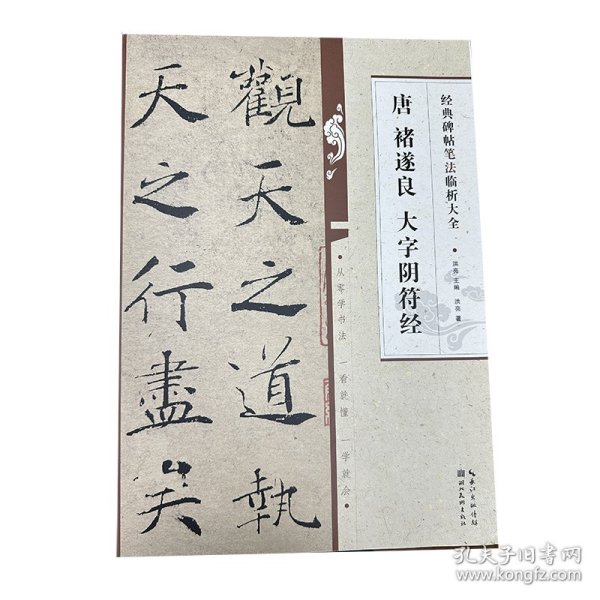 觀天之道執
天之行盡矣
经典碑帖笔法临析大全
唐 褚遂良 大字阴符经
洪亮 主编 洪亮 著
•从零学书法 一看就懂 一学就会•
长江出版传媒
湖北美术出版社
孔夫子旧书网
www.kongfz.com